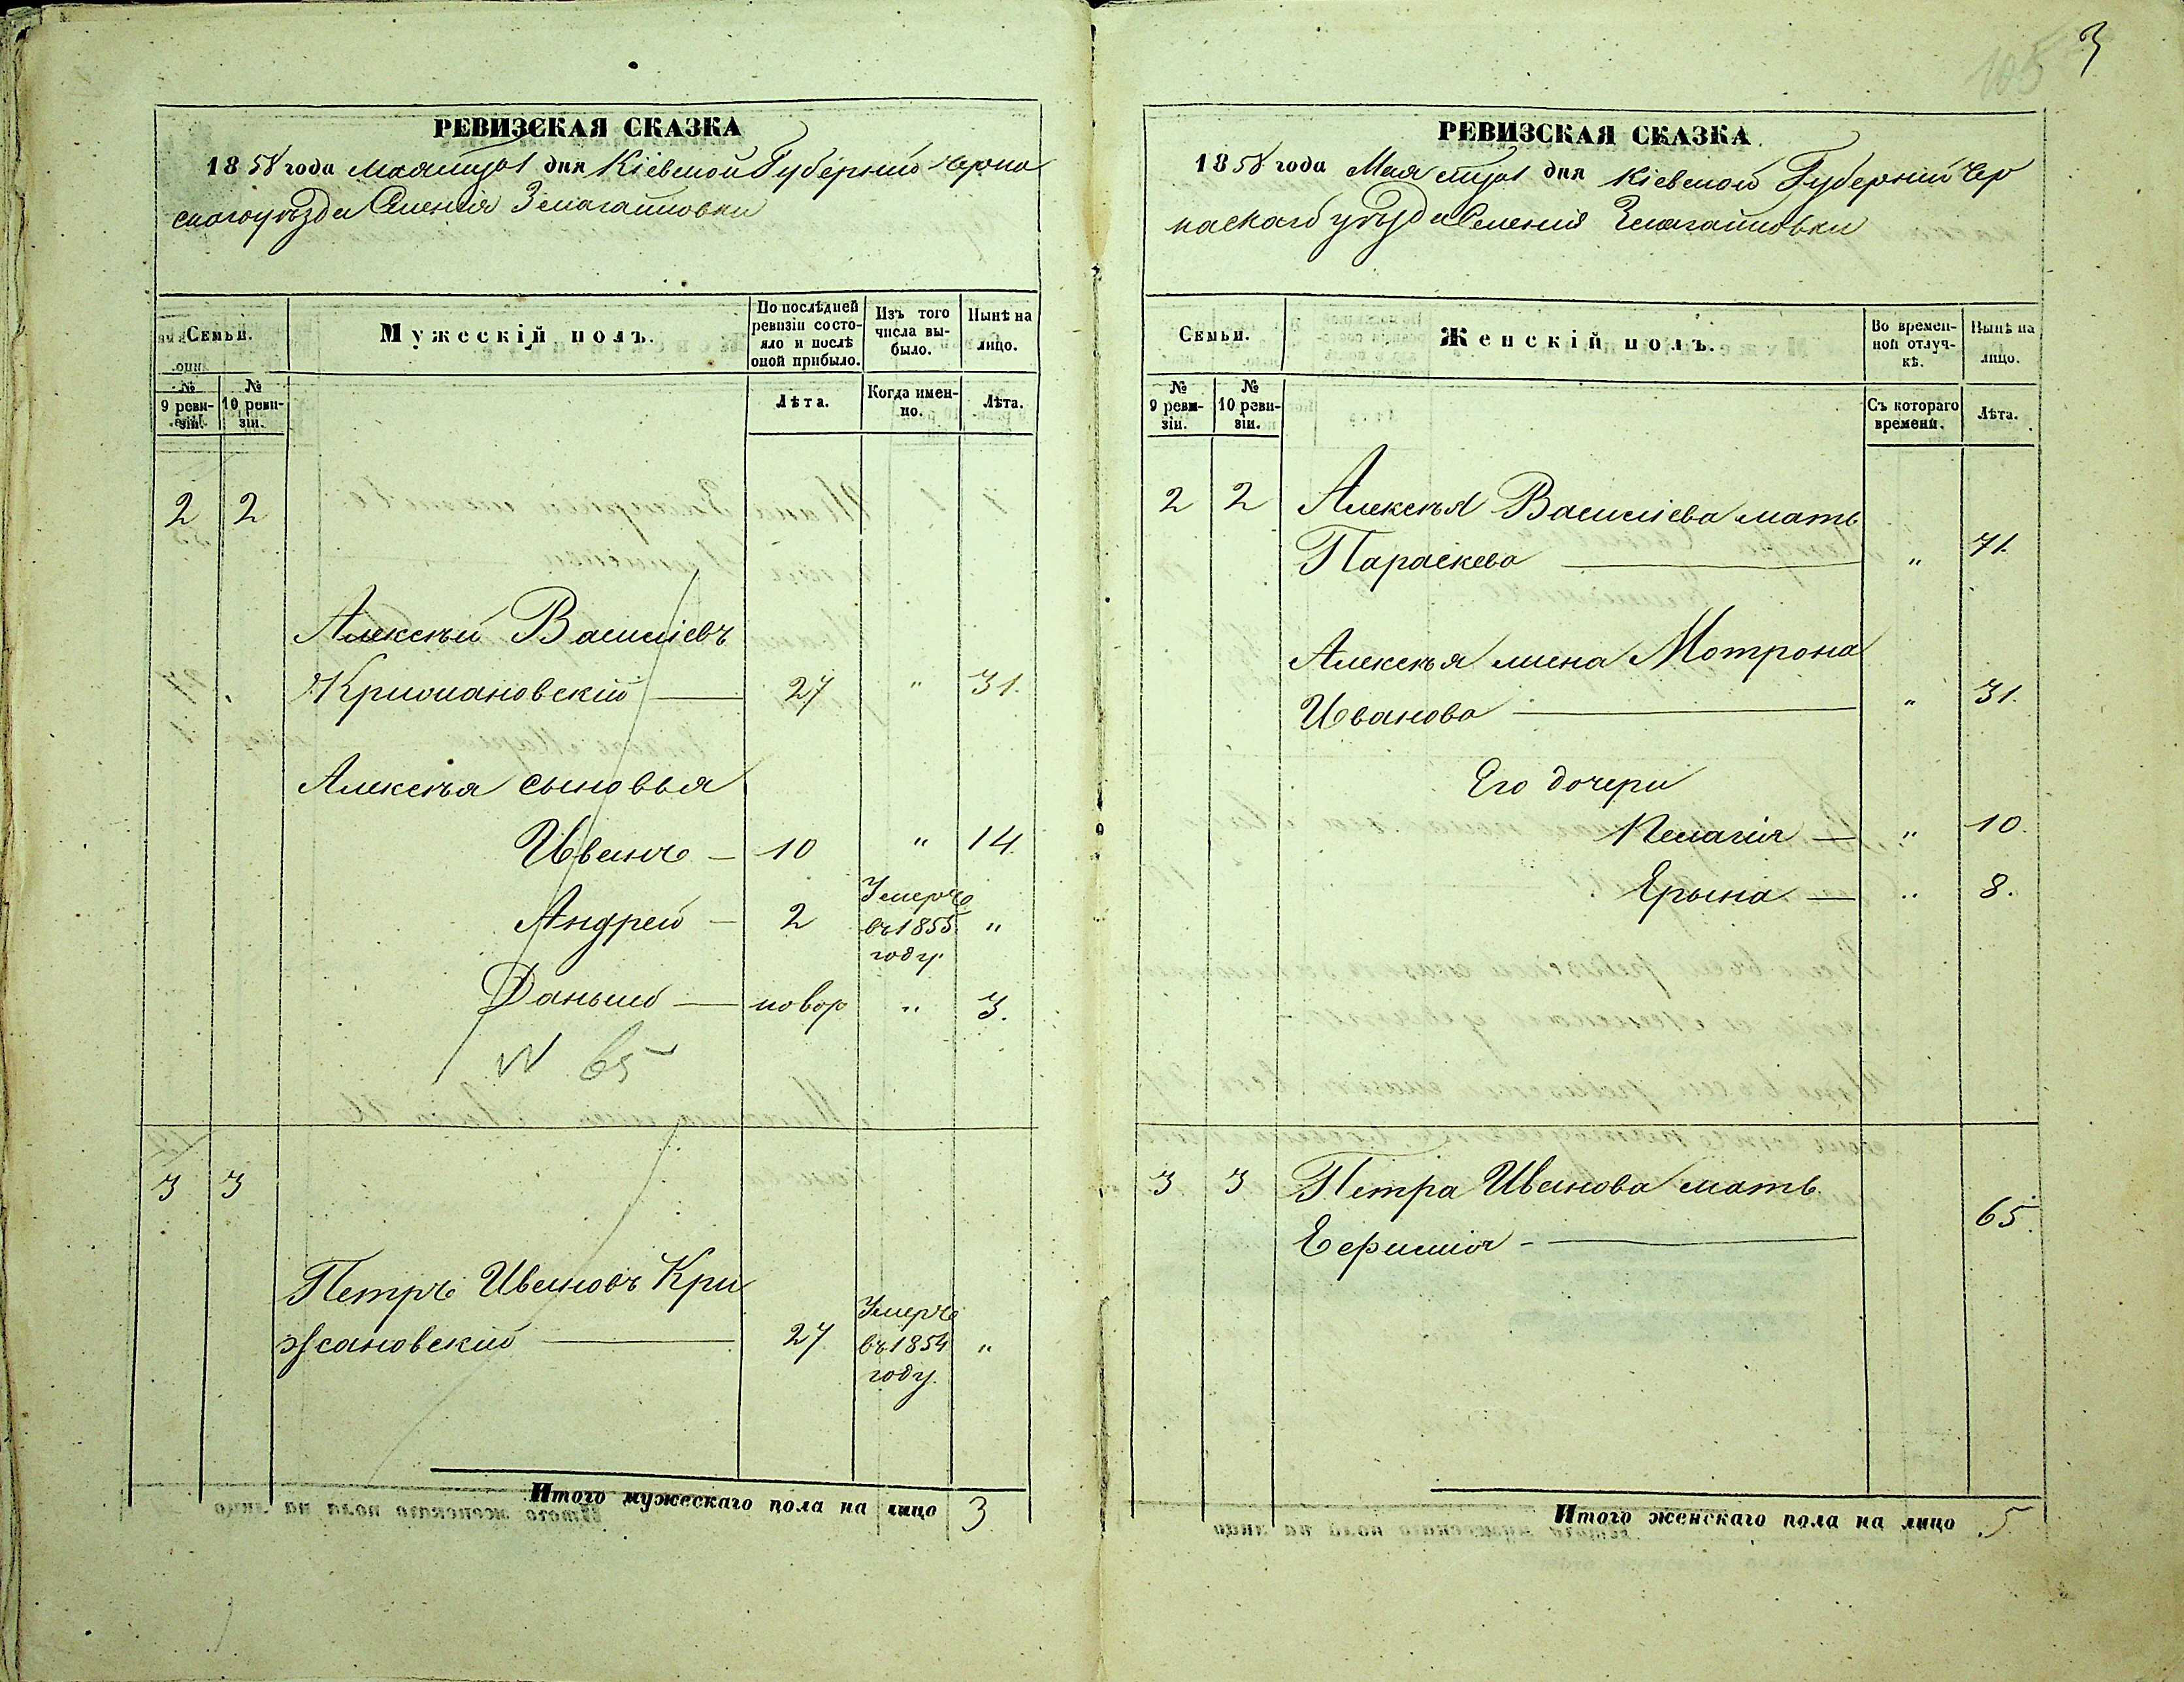 3
105
РЕВИЗСКАЯ СКАЗКА
1858 года Мая 1 дня Кіевской Губерніи Черка
скаго уѣзда Селенія
Семьи.
Мужескій полъ.
По послѣдней ревизіи состояло и послѣ оной прибыло.
Изъ того числа выбыло.
Нынѣ на лицо.
№ 9 ревизіи.
№ 10 ревизіи.
Лѣта.
Когда именно.
Лѣта.
2 2
Алексѣй Василіевъ
Крижановскій — 27 " 31.
Алексѣя сыновья
Иванъ — 10 " 14.
Андрей — 2 Умеръ въ 1855 году "
Даныло — новор " 3.
N 65
3 3
Петръ Ивановъ Кри
жановский — 27 Умеръ въ 1854 году. "
Итого мужескаго пола на лицо 3
РЕВИЗСКАЯ СКАЗКА.
1858 года Мая 1 дня Кіевской Губерніи Чер
каскаго уѣзда Селенія
Семьи.
Женскій полъ.
Во временной отлучкѣ.
Нынѣ на лицо.
№ 9 ревизіи.
№ 10 ревизіи.
Съ котораго времени.
Лѣта.
2 2 Алексѣя Василіева мать
Параскева — " 71.
Алексѣя жена Мотрона
Иванова — " 31.
Его дочери
Пелагія — " 10.
Ерына — " 8.
3 3 Петра Иванова мать
Ефимия — 65.
Итого женскаго пола на лицо 5